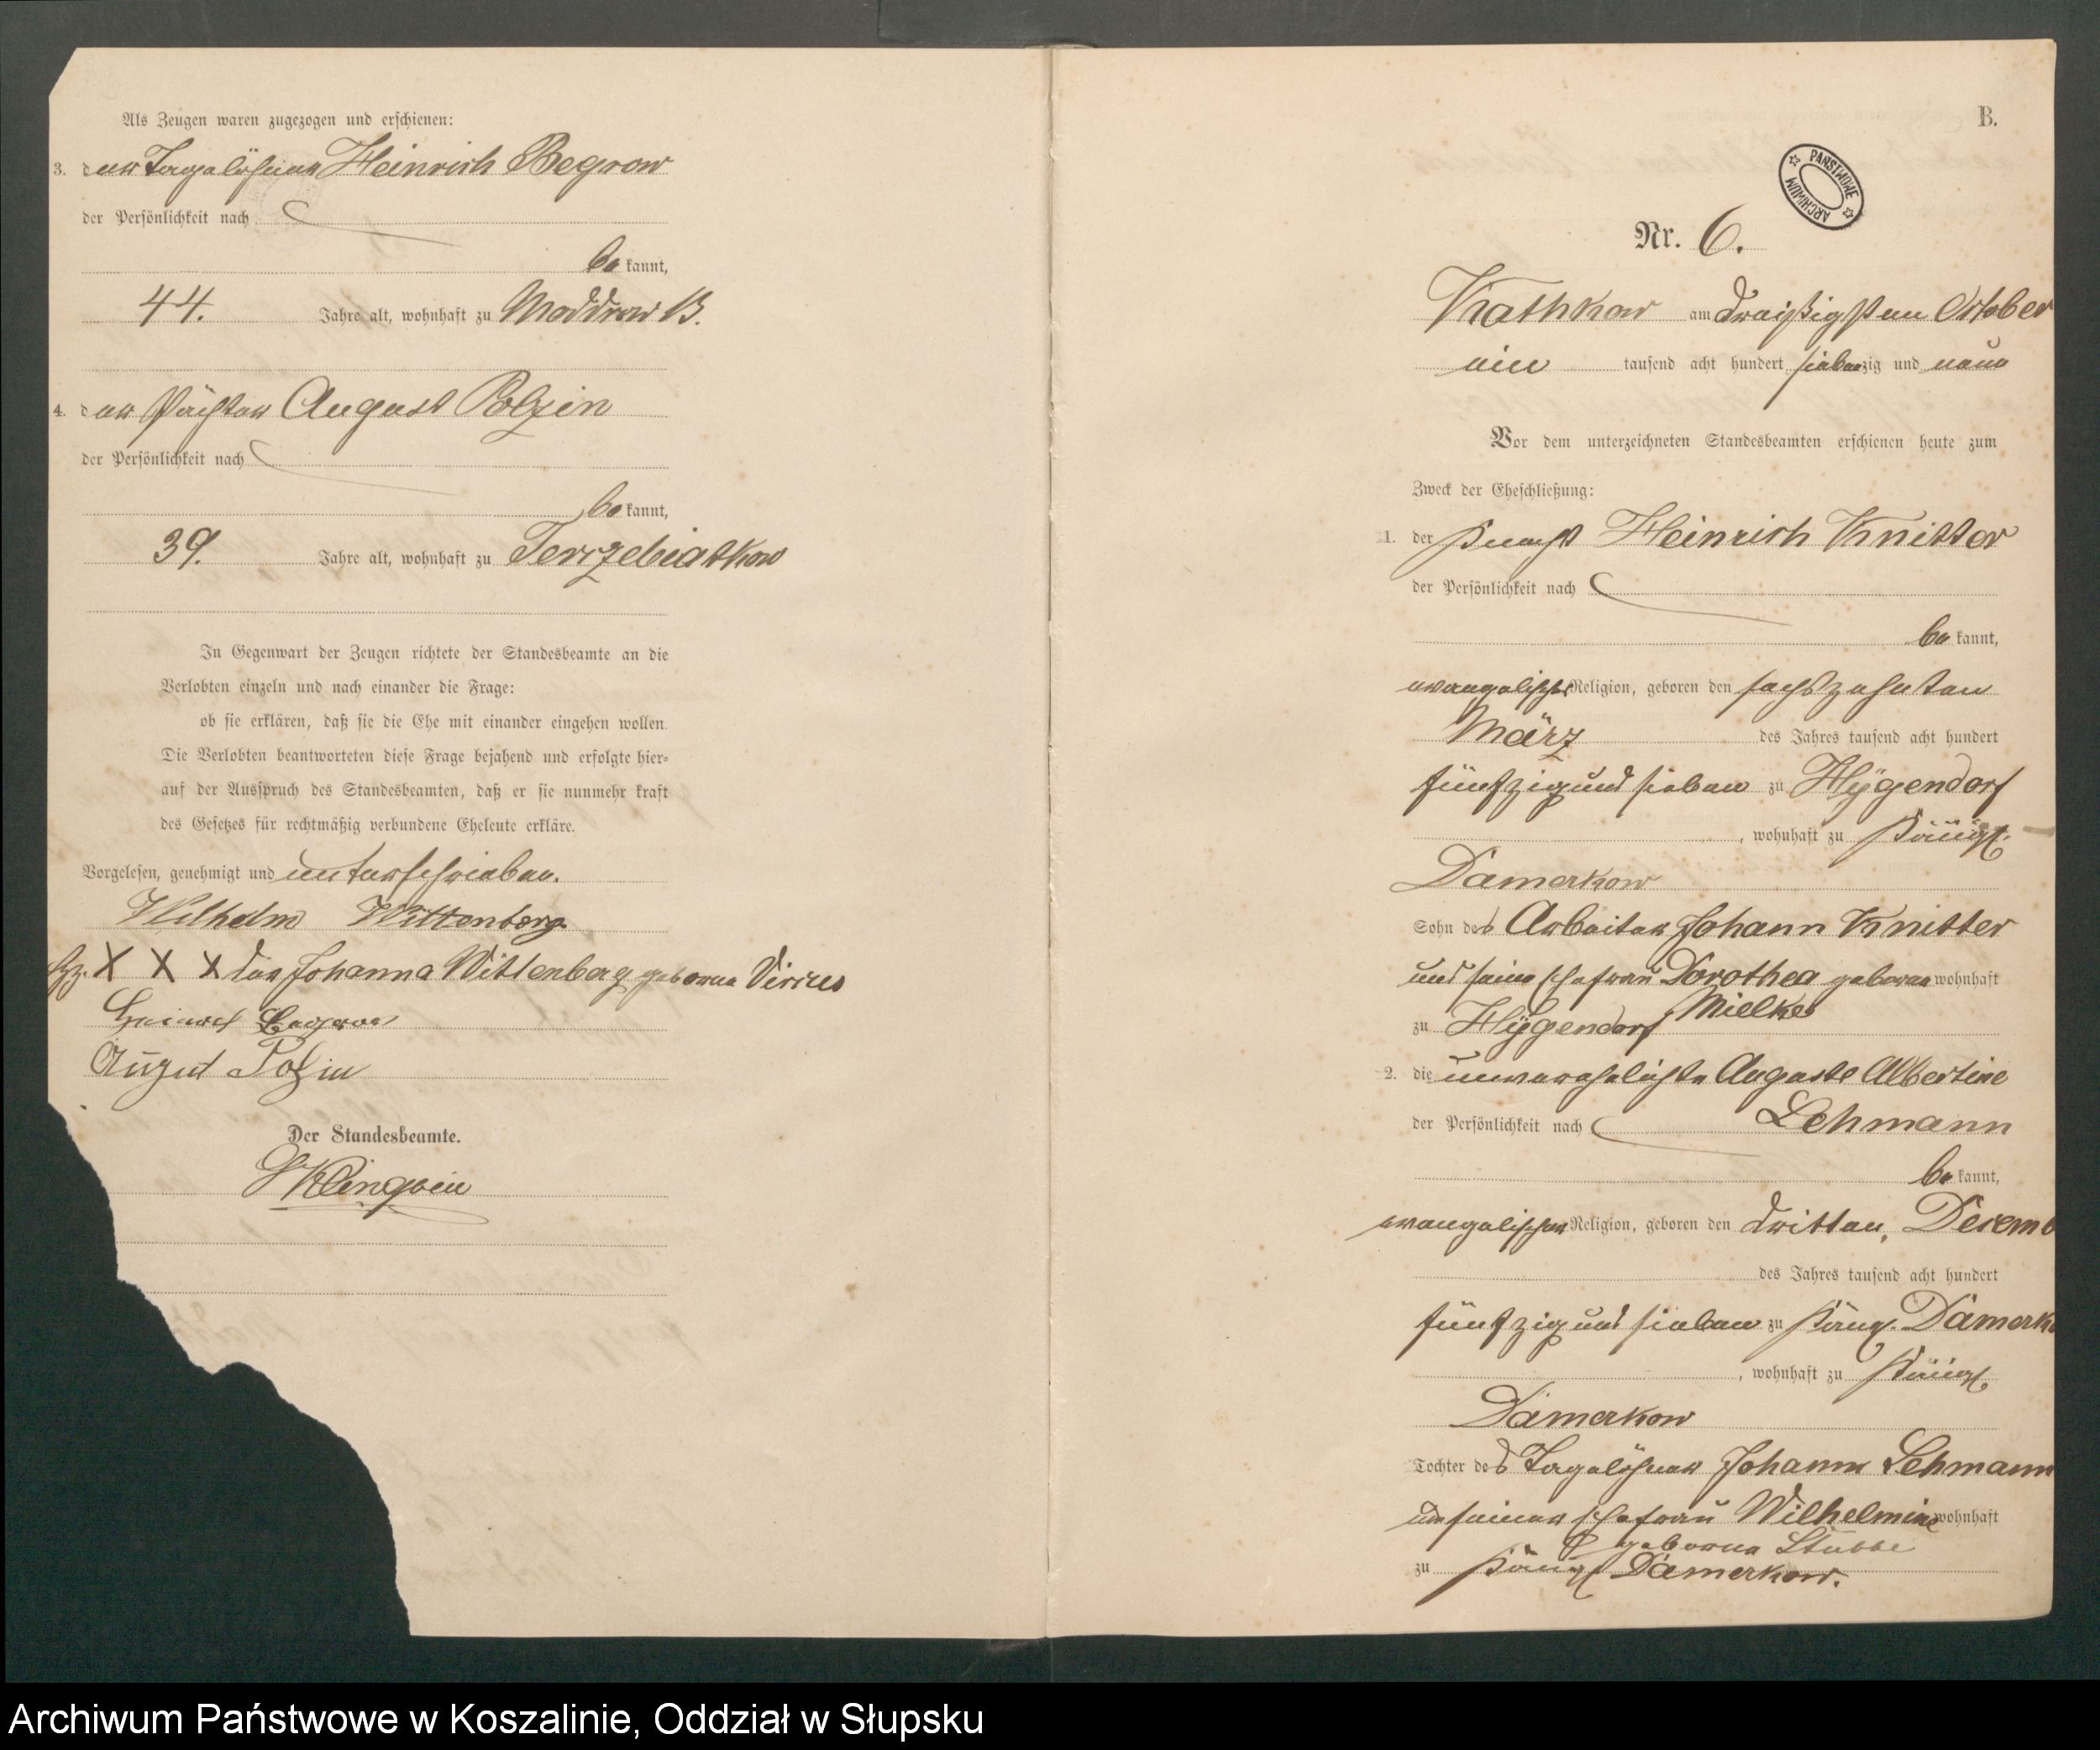 Als Zeugen waren zugezogen und erschienen:
3. der Tagelöhner Heinrich Begrow
der Persönlichkeit nach
bekannt,
44. Jahre alt, wohnhaft zu Moddrow B.
4. der Pächter August Polzin
der Persönlichkeit nach
bekannt,
39. Jahre alt, wohnhaft zu Jerrzebiatkow
In Gegenwart der Zeugen richtete der Standesbeamte an die
Verlobten einzeln und nach einander die Frage:
ob sie erklären, daß sie die Ehe mit einander eingehen wollen.
Die Verlobten beantworteten diese Frage bejahend und erfolgte hier=
auf der Ausspruch des Standesbeamten, daß er sie nunmehr kraft
des Gesetzes für rechtmäßig verbundene Eheleute erkläre.
Vorgelesen, genehmigt und unterschrieben.
Wilhelm Wittenberg
Hz. X X X der Johanna Wittenberg geborne Virrus
Heinrich Begrow
August Polzin
Der Standesbeamte.
B.
PAŃSTWOWE ARCHIWUM
Nr. 6.
Kathkow am dreißigsten October
ein tausend acht hundert siebenzig und neun
Vor dem unterzeichneten Standesbeamten erschienen heute zum
Zweck der Eheschließung:
1. der Knecht Heinrich Knitter
der Persönlichkeit nach
bekannt,
evangelischer Religion, geboren den sechszehnten
März des Jahres tausend acht hundert
fünfzig und sieben zu Hÿgendorf
, wohnhaft zu Königl.
Damerkow
Sohn des Arbeiter Johann Knitter
und seine Ehefrau Dorothea geboren wohnhaft
Mielke
zu Hÿgendorf
2. die unverehelichte Auguste Albertine
der Persönlichkeit nach Lehmann
bekannt,
evangelischer Religion, geboren den dritten, Decemb
des Jahres tausend acht hundert
fünfzig und sieben zu Königl. Damerko
, wohnhaft zu Königl.
Damerkow
Tochter des Tagelöhner Johann Lehmann
und seiner Ehefrau Wilhelmine wohnhaft
geborne Stubbe
zu Königl Damerkow.
Archiwum Państwowe w Koszalinie, Oddział w Słupsku